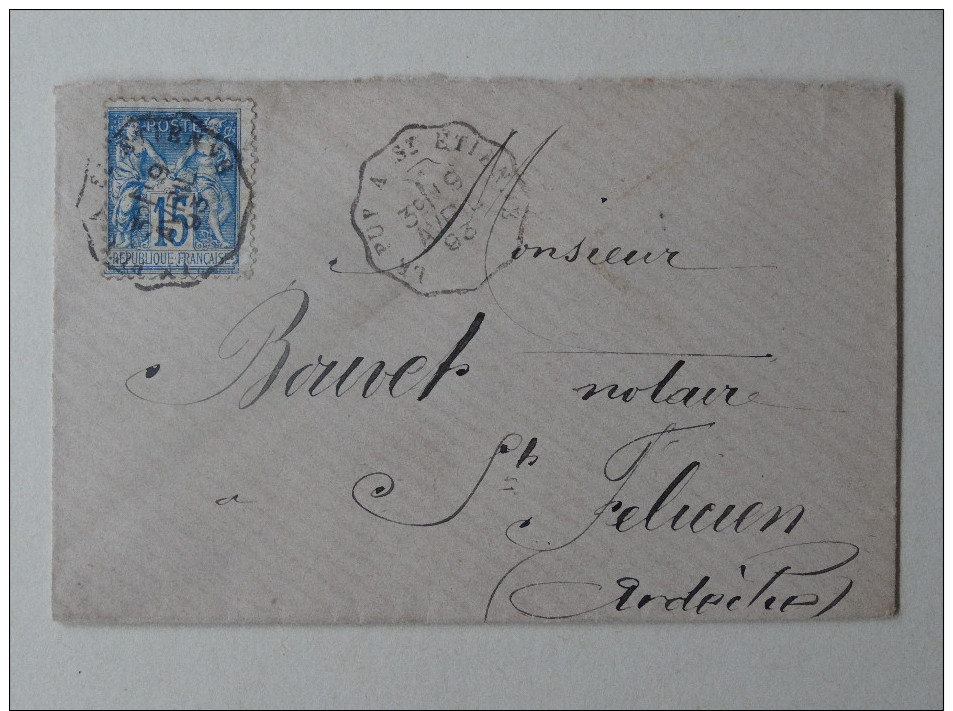 POSTE
15
REPUBLIQUE FRANÇAISE
LE PUY A ST ETIENNE
3E
9
AVRIL
93
Monsieur
Bouvet notaire
a St Felicien
(Ardèche)